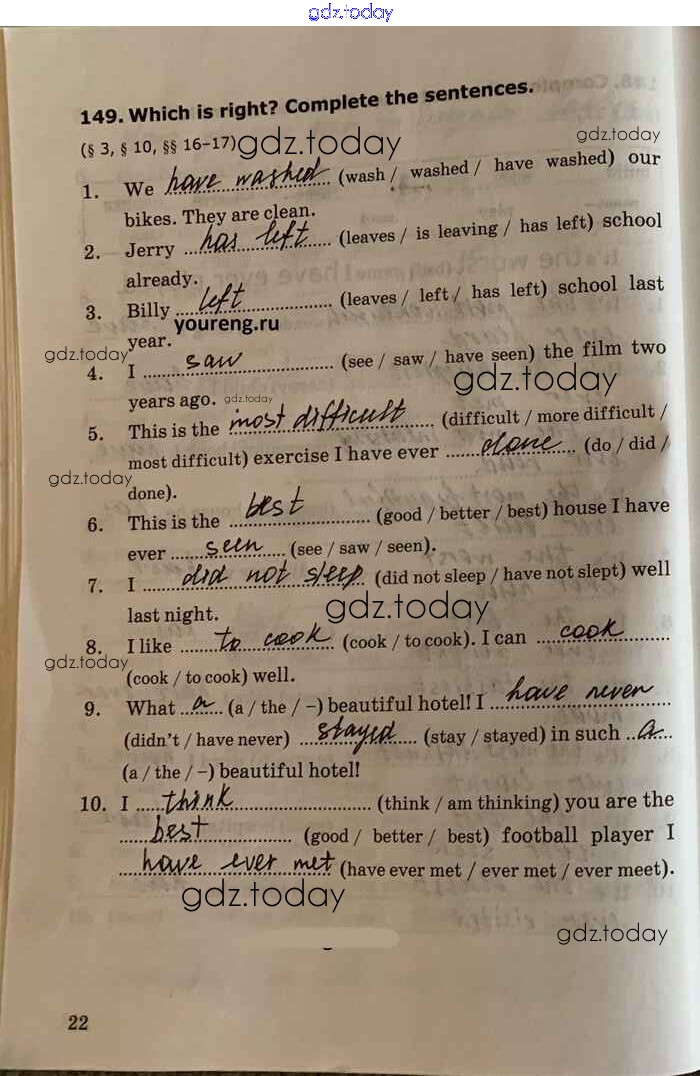 gdz.today
149. Which is right? Complete the sentences.
(§ 3, § 10, §§ 16–17) gdz.today gdz.today
1. We have washed (wash / washed / have washed) our
bikes. They are clean.
2. Jerry has left (leaves / is leaving / has left) school
already.
3. Billy left (leaves / left / has left) school last
youreng.ru
year.
gdz.today
4. I saw (see / saw / have seen) the film two
gdz.today
years ago. gdz.today
5. This is the most difficult (difficult / more difficult /
most difficult) exercise I have ever done (do / did /
gdz.today
done).
6. This is the best (good / better / best) house I have
ever seen (see / saw / seen).
7. I did not sleep (did not sleep / have not slept) well
last night. gdz.today
8. I like to cook (cook / to cook). I can cook
gdz.today
(cook / to cook) well.
9. What a (a / the / –) beautiful hotel! I have never
(didn't / have never) stayed (stay / stayed) in such a
(a / the / –) beautiful hotel!
10. I think (think / am thinking) you are the
best (good / better / best) football player I
have ever met (have ever met / ever met / ever meet).
gdz.today
gdz.today
22